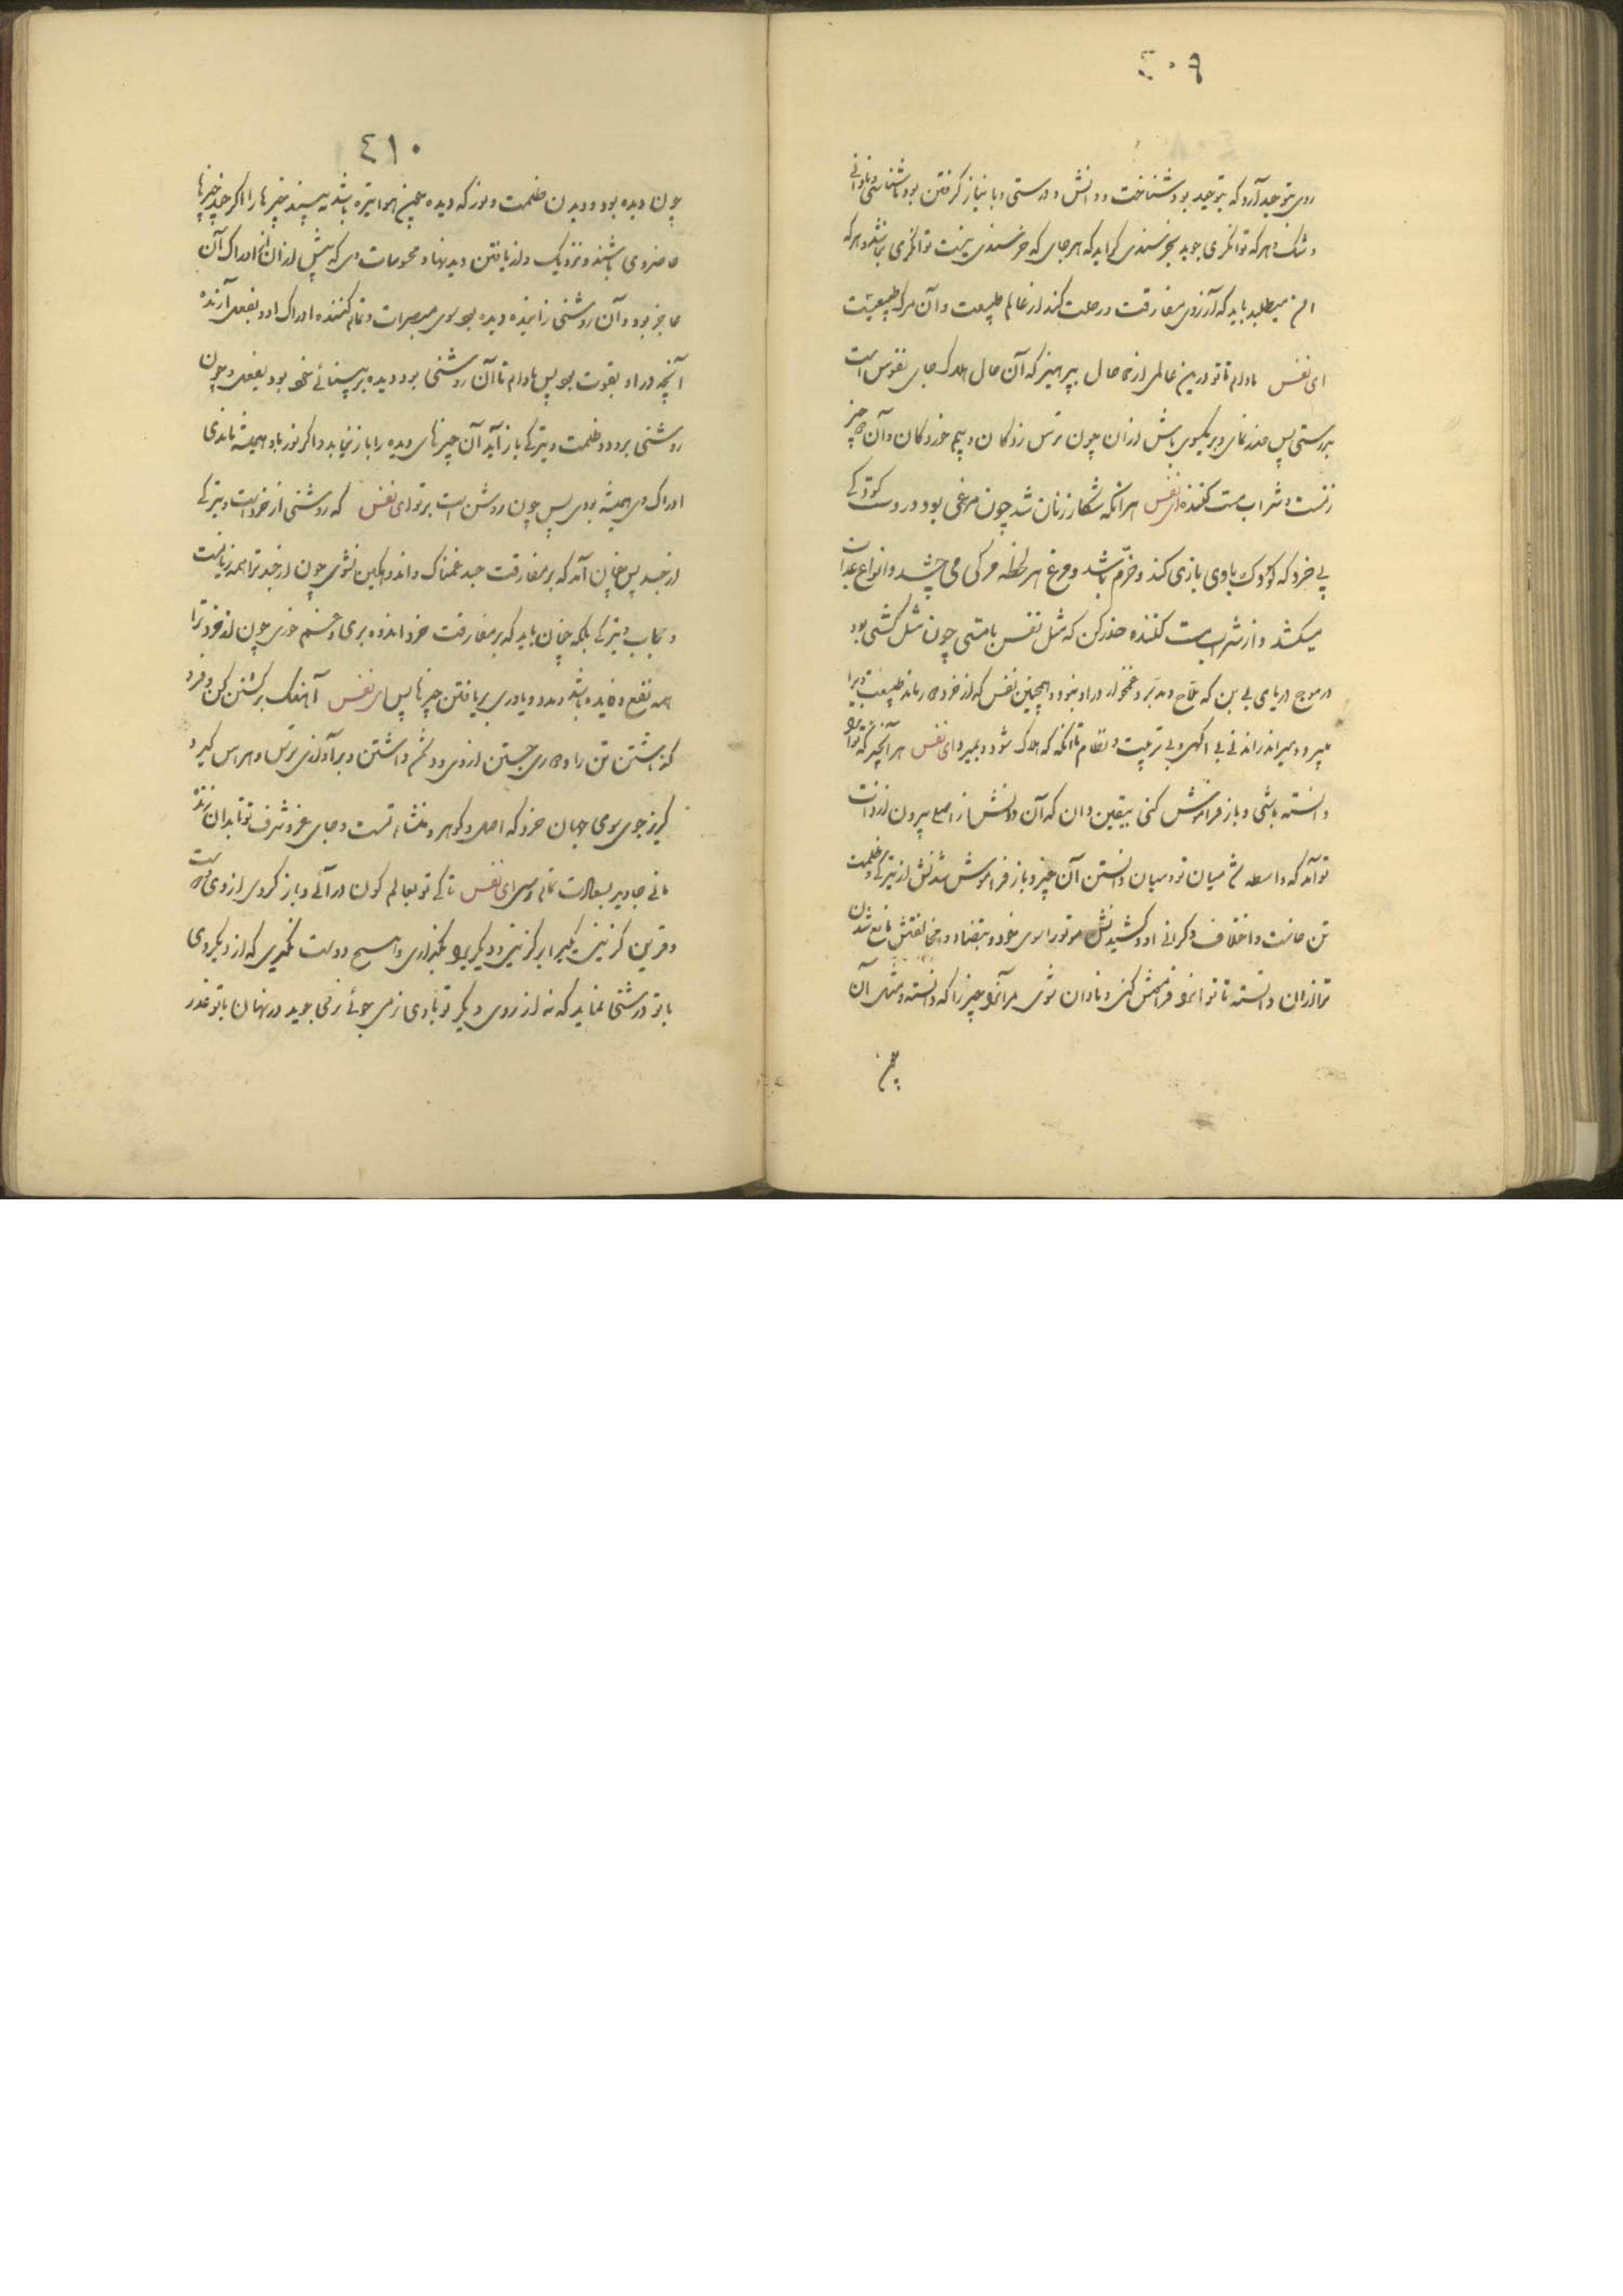 ٤٠٩
روی بتوحید آرد که بتوحید بود شناخت و دانش و درستی و با نیاز گرفتن بود ناشناسی و نادانی
و شک و هر که توانگری جوید بخرسندی گراید که هر جای که خرسندی نیست توانگری نباشد و هر که
امن میطلبد باید که آرزوی مفارقت و رحلت کند از عالم طبیعت و آن مرگ طبیعیت
ای نفس مادام تا تو درین عالمی از حال بپرهیز که آن حال هلاک جای نفوس است
بدرستی پس حذر نمای و بر یکسوی باش ازان چون ترس زدگان و بیم خوردگان و آن چیز
زنست و شراب مست کننده ای نفس هر انکه شکار زنان شد چون مرغی بود در دست کودکی
بی خرد که کودک باوی بازی کند و خرّم باشد و مرغ هر لحظه مرگی می چشد و انواع عذاب
میکشد و از شراب مست کننده حذر کن که مثل نفس با مستی چون مثل کشتی بود
در موج دریای بی بن که ملاح و مدبر و غمخوار در او نبود و همچنین نفس که از خرد رماند طبیعت ویرا
میبرد و میراند راندنی بی آگهی و بی ترتیب و نظام تا آنکه که هلاک شود و بمیرد ای نفس هر آنچیز که تو آنرا
دانسته باشی و باز فراموش کنی بیقین دان که آن دانش از اصل بیرون از ذات
تو آمد که واسطه شد میان تو و میان دانستن آن چیز و باز فراموش شدنش از تیرگی و ظلمت
تن خاست و اختلاف و گرانی او و کشیدنش مر تو را سوی خود و بتضاد و مخالفتش مانع شدن
ترا ازان دانسته تا تو آنرا فراموش کنی و نادان شوی مر آنرا و چیز را که دانسته و مثل آن
چون
٤١٠
چون دیده بود و دیدن ظلمت و نور که دیده همچنین هوا تیره باشد نه بیند چیزها را اگر چند چیزها
حاضر وی باشند و نزدیک و از یافتن دیدنها و محسوسات وی که پیش ازان ادراک آن
عاجز بود و آن روشنی زاینده دیده بود سوی مبصرات و تمام کننده ادراک او و بفعل آرنده
آنچه در او بقوت بود پس مادام تا آن روشنی بود دیده بر بینائی خود بود بفعل و چون
روشنی برود و ظلمت و تیرگی باز آید آن چیزهای دیده را باز نیابد و اگر نور با او همیشه ماندی
ادراک وی همیشه بودی پس چون روشن است بر تو ای نفس که روشنی از خردست و تیرگی
از جسد پس چنان آمد که بر مفارقت جسد غمناک و اندوهگین نشوی چون از جسد ترا همه زیانست
و حجاب و تیرگی بلکه چنان باید که بر مفارقت خرد اندوه بری و غم خوری چون از خرد ترا
همه نفع و فایده باشد و مدد و یاوری بریافتن چیزها پس ای نفس آهنگ برگشتن کن و فرو
گذاشتن تن را و دوری جستن از وی و دشمن داشتن و برآور از وی ترس و هراس گیر و
گریز جوی سوی جهان خرد که اصل و گوهر و منشاء تست و جای عز و شرف تو تا بدان زنده
مانی جاوید بسعادت تمام رسی ای نفس تا کی تو بعالم کون در آئی و باز گردی از وی
و قرین گزینی یکی را بر گزینی و دیگری را بگذاری و هیچ دوست نگیری که از دیگر روی
با تو درشتی ننماید که نه از روی دیگر تو با وی نرمی جوئی نرمی جوید در نهان با تو غدر